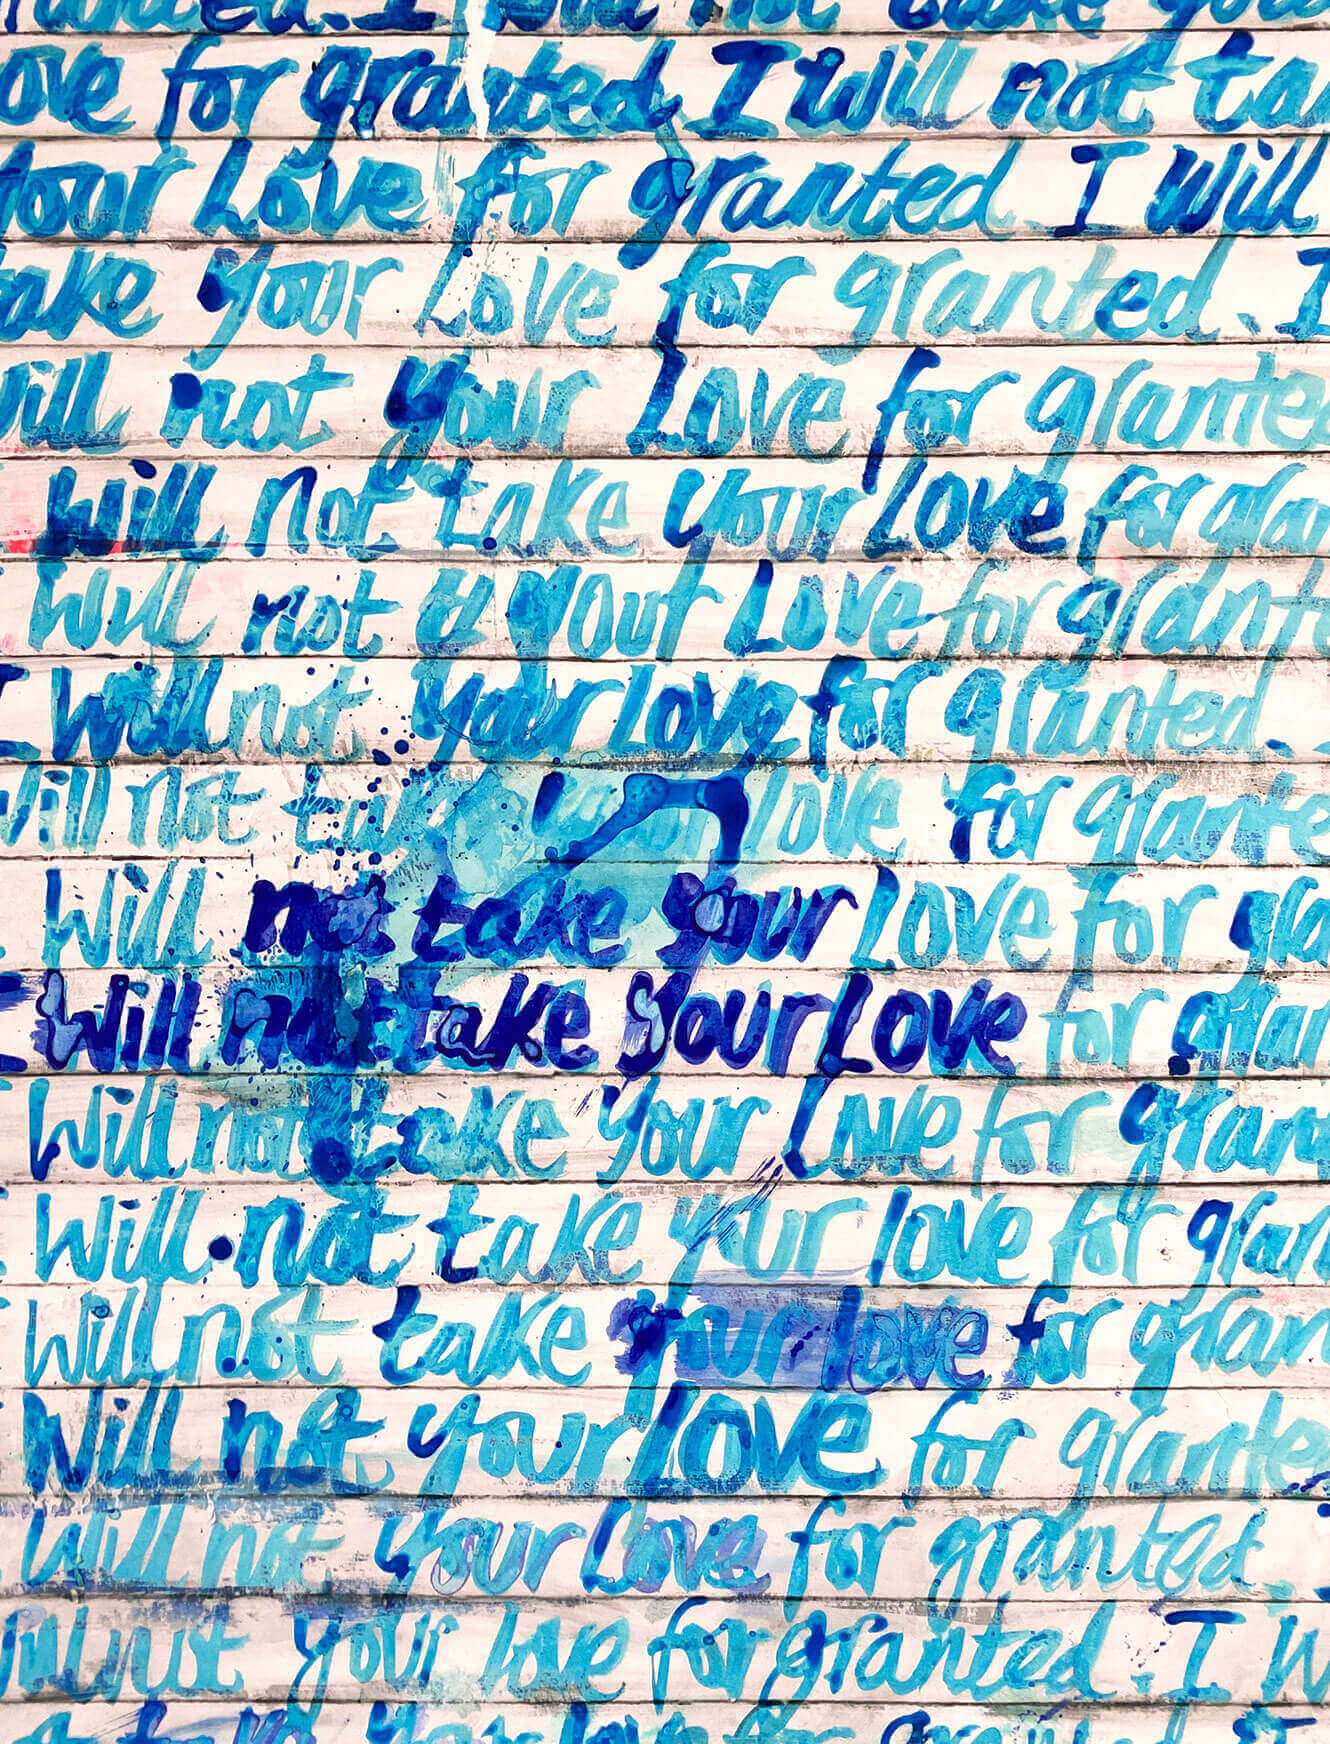 I will not take your
love for granted I will not ta
your Love for granted. I Will
take your Love for granted. I
will not your Love for grante
will not take your Love for gran
Will not your Love for grante
I will not your love for granted.
will not take love for grante
Will not take your Love for gra
I will not take your Love for gran
Will not take your Love for gran
Will not take your love for gran
Will not take your love for gran
Will not your love for grante
Will not your love for granted.
will not your love for granted. I W
your love for granted